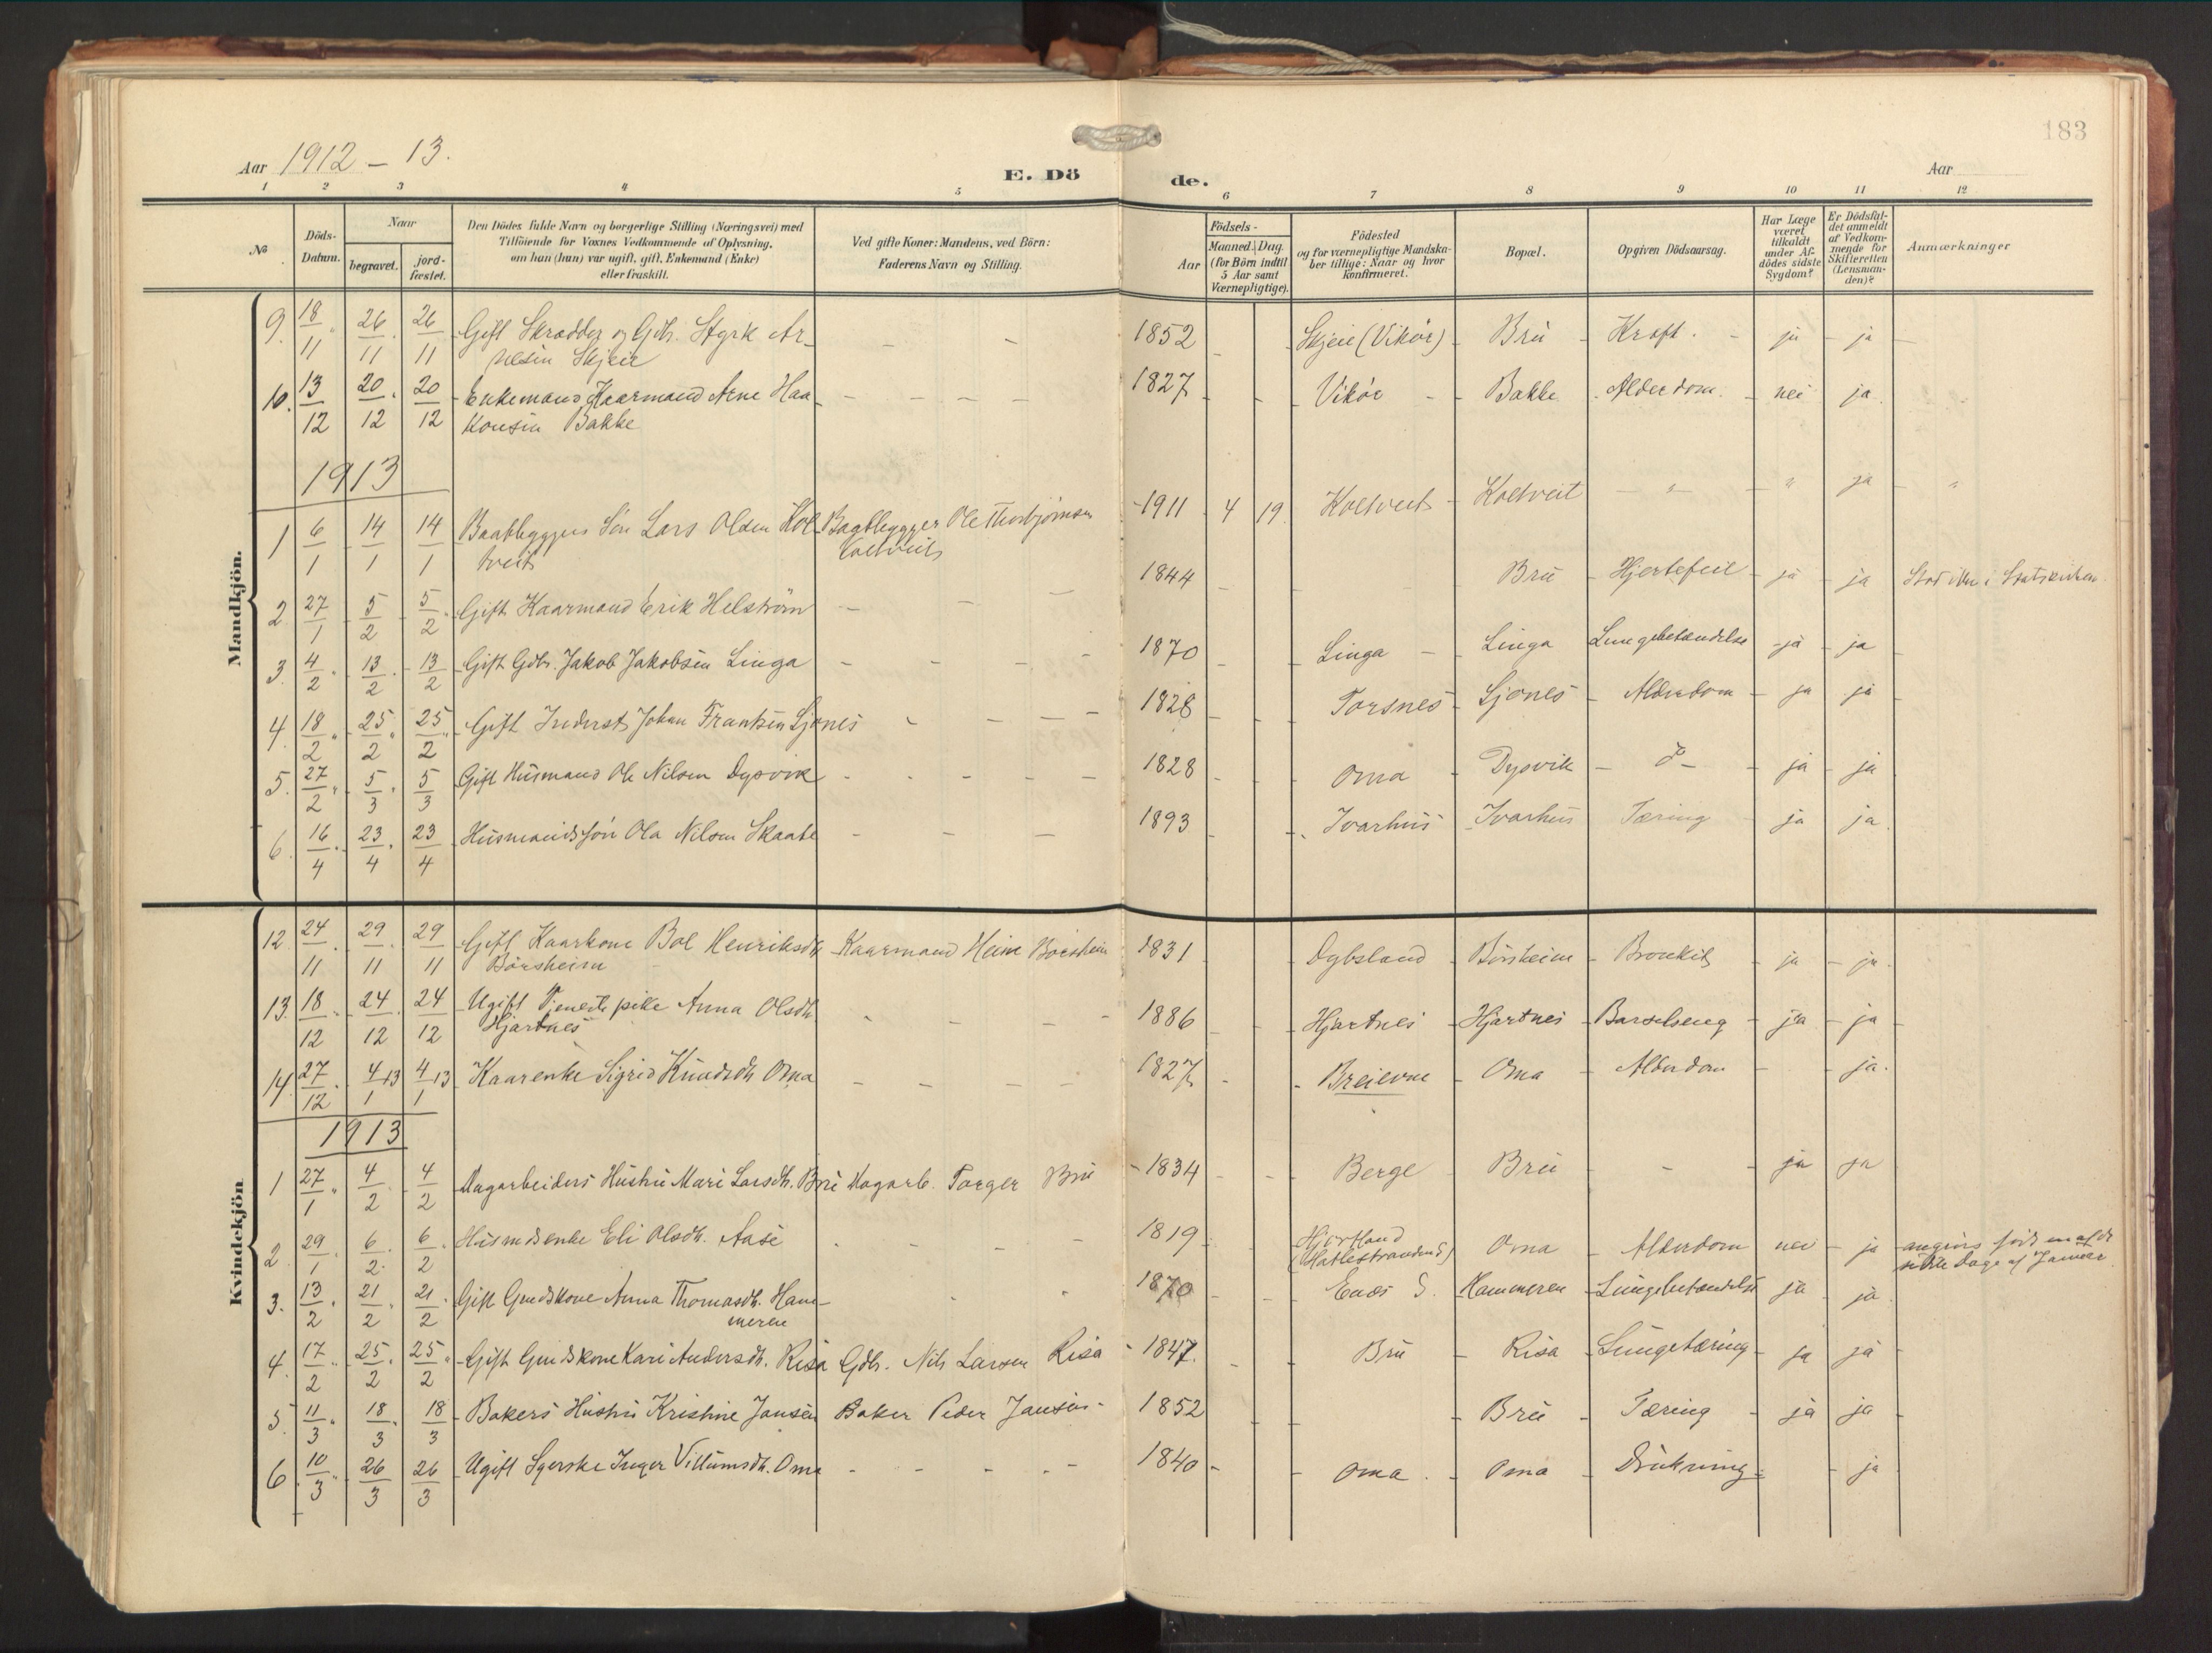 183
Aar 1912 - 13.
E. Dö de.
Aar
1 2 3 4 5 6 7 8 9 10 11 12
No
Döds-Datum.
Naar
begravet.
jord-fæstet.
Den Dödes fulde Navn og borgerlige Stilling (Næringsvei) med
Tilföiende for Voxnes Vedkommende af Oplysning,
om han (hun) var ugift, gift, Enkemand (Enke)
eller fraskilt.
Ved gifte Koner: Mandens, ved Börn:
Faderens Navn og Stilling.
Födsels-
Aar
Maaned. Dag.
(for Börn indtil
5 Aar samt
Værnepligtige).
Födested
og for værnepligtige Mandska-
ber tillige: Naar og hvor
konfirmeret.
Bopæl.
Opgiven Dödsaarsag.
Har Læge
været
tilkaldt
under Af-
dödes sidste
Sygdom?
Er Dödsfal-
det anmeldt
af Vedkom-
mende for
Skifteretten
(Lensman-
den)?
Anmærkninger
Mandkjön.
9. 18/11 26/11 26/11 Gift Skrædder og Gdb. Styrk Ar- - - 1852 - - Skjeie (Vikör) - Bru - Kræft. - ja - ja -
nesen Skjeie
10. 13/12 20/12 20/12 Enkemand Kaarmand Arne Haa- - - - - 1827 - - Vikör - Bakke - Alderdom. - nei ja.
konsen Bakke
1913
1 6/1 14/1 14/1 Baatbyggers Sön Lars Olsen Kol- Baatbygger Ole Thorbjörnsen - 1911 4 19. Koltveit - Koltveit - " - " ja - "
tveit Koltveit
2 27/1 5/2 5/2 Gift Kaarmand Erik Helström - - - 1844 - - Bru - Hjertefeil - ja - ja Stod ikke i Statskirken.
3. 4/2 13/2 13/2 Gift Gdbr. Jakob Jakobsen Linga - - - - 1870 - - Linga - - Linga Lungebetændelse - ja - ja -
4. 18/2 25/2 25/2 Gift Inderst Johan Frantsen Ljones - - - - 1828 - - Torsnes - Ljones - Alderdom - ja ja
5. 27/2 5/3 5/3 Gift Husmand Ole Nilsen Dysvik - - - - - 1828 - - Oma - Dysvik - do - - ja - ja
6. 16/4 23/4 23/4 Husmandssön Ola Nilsen Skaate - - - 1893 - - Ivarhus - Ivarhus - Tæring ja ja.
Kvindekjön
12. 24/11 29/11 29/11 Gift Kaarkone Bol Henriksdtr. Kaarmand Heine Börsheim 1831 Dybsland - Börsheim - Bronkit ja - ja.
Börsheim
13. 18/12 24/12 24/12 Ugift Tjenestepike Anna Olsdtr. - - - - 1886 - - Hjartnes - Hjartnes - Barselseng - ja - ja -
Hjartnes
14. 27/12 4/1 13 4/1 13 Kaarenke Sigrid Knudsdtr. Oma - - - - 1827 - - Breievne - Oma - Alderdom - - ja.
1913
1 27/1 4/2 4/2 Dagarbeiders Hustru Mari Larsdtr. Bru Dagarb. Torger Bru - 1834 - - Berge - Bru - - - ja ja
2. 29/1 6/2 6/2 Husmdsenke Eli Olsdtr. Aase - - - - 1819 - Hjortland Oma - Alderdom nei - ja angives födt en af de
(Hatlestrandens) sidste Dage af Januar.
3. 13/2 21/2 21/2 Gift Grndskone Anna Thomasdtr. Ham- - - 1870 - - Enæs S. Hammeren - Lungebetændelse ja ja
meren
4. 17/2 25/2 25/2 Gift Grndskone Kari Andersdtr. Risa Gdb. Nils Larsen Risa - 1847. - Bru - Risa - Lungetæring - ja ja -
5. 11/3 18/3 18/3 Bakers Hustru Kristine Jansen Baker Peder Jansen - 1852 - - Bru - Tæring - ja - ja -
6. 10/3 26/3 26/3 Ugift Syerske Inger Villumsdtr. Oma - - - - - 1840 - - Oma. - Oma - Drukning - - ja